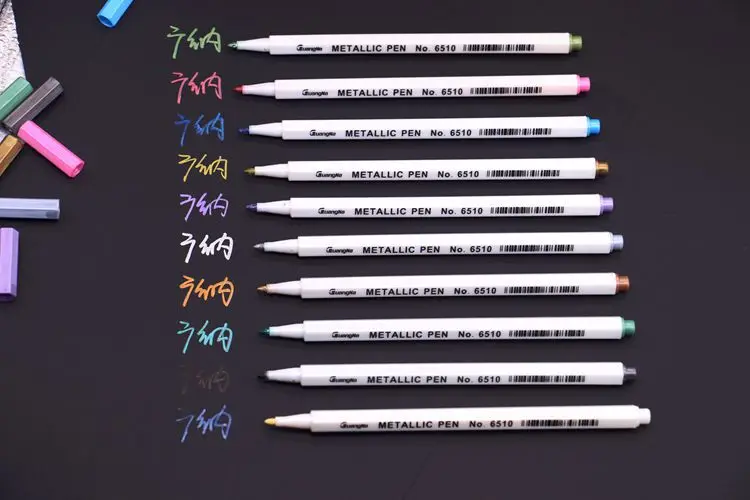 广纳 GuangNa METALLIC PEN No. 6510
广纳 GuangNa METALLIC PEN No. 6510
广纳 GuangNa METALLIC PEN No. 6510
广纳 GuangNa METALLIC PEN No. 6510
广纳 GuangNa METALLIC PEN No. 6510
广纳 GuangNa METALLIC PEN No. 6510
广纳 GuangNa METALLIC PEN No. 6510
广纳 GuangNa METALLIC PEN No. 6510
GuangNa METALLIC PEN No. 6510
广纳 GuangNa METALLIC PEN No. 6510